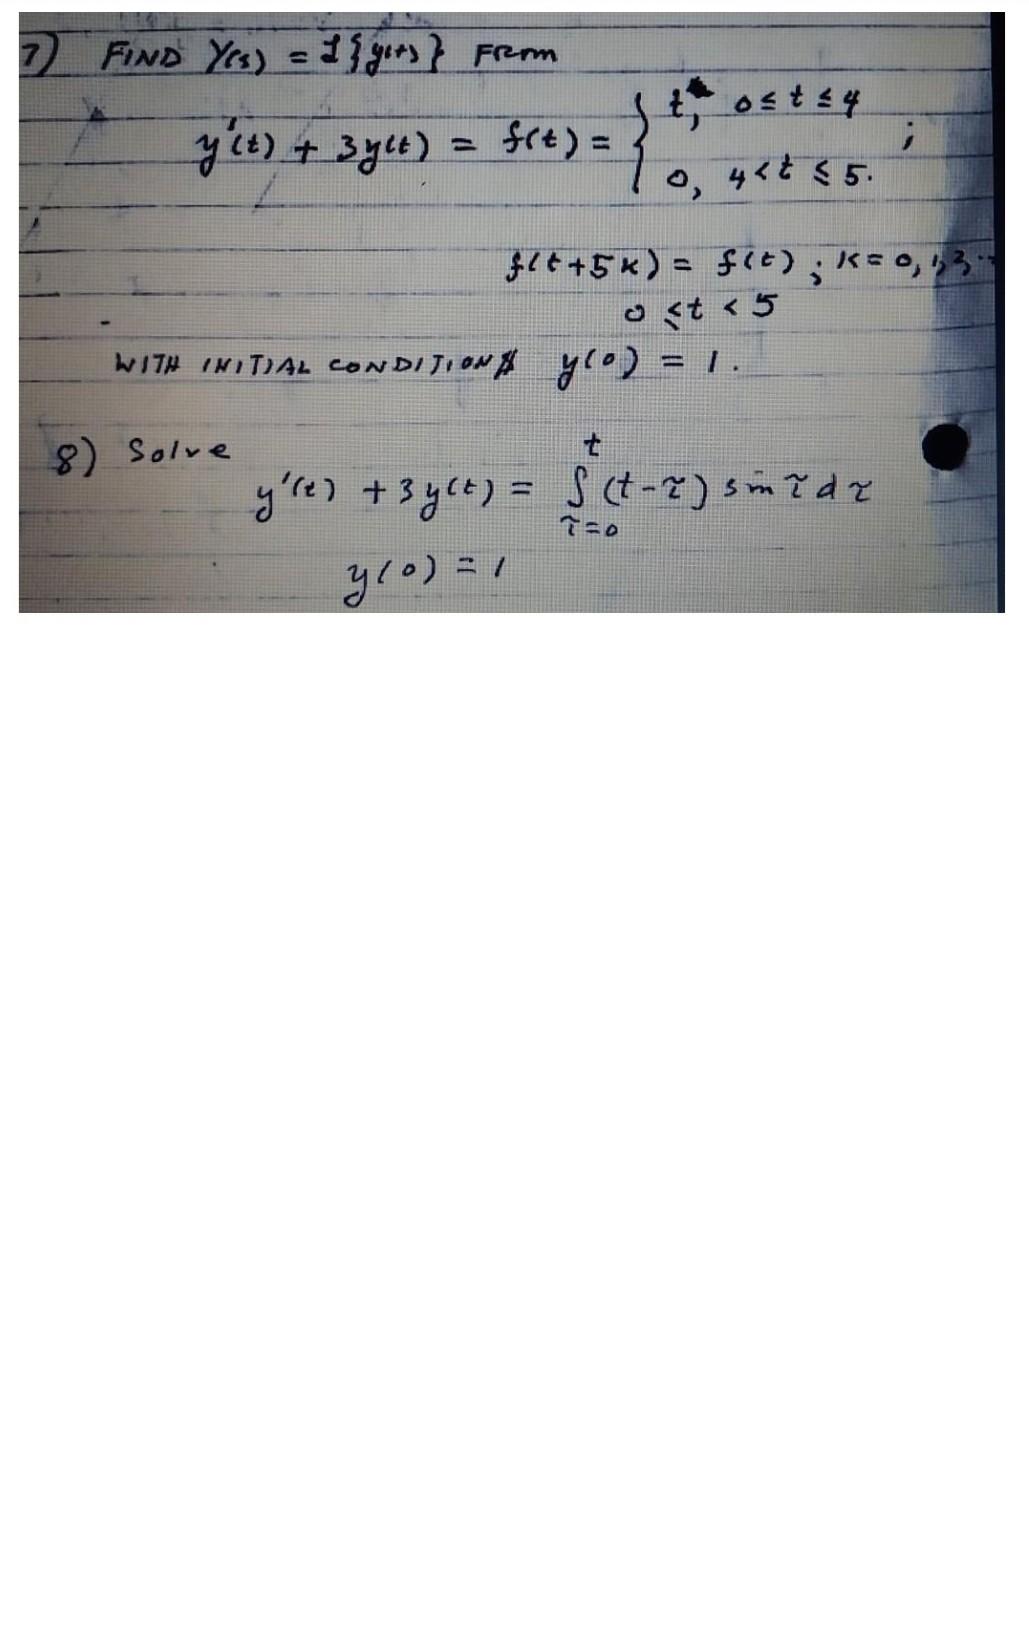 7) FIND Y(s) = ℒ{y(t)} FROM
y'(t) + 3y(t) = f(t) = { t, 0 ≤ t ≤ 4 ;
0, 4 < t ≤ 5.
f(t+5k) = f(t) ; k = 0, 1, 2, ..
0 ≤ t < 5
WITH INITIAL CONDITION y(0) = 1.
8) Solve
y'(t) + 3y(t) = ∫_{τ=0}^{t} (t-τ) sin τ dτ
y(0) = 1